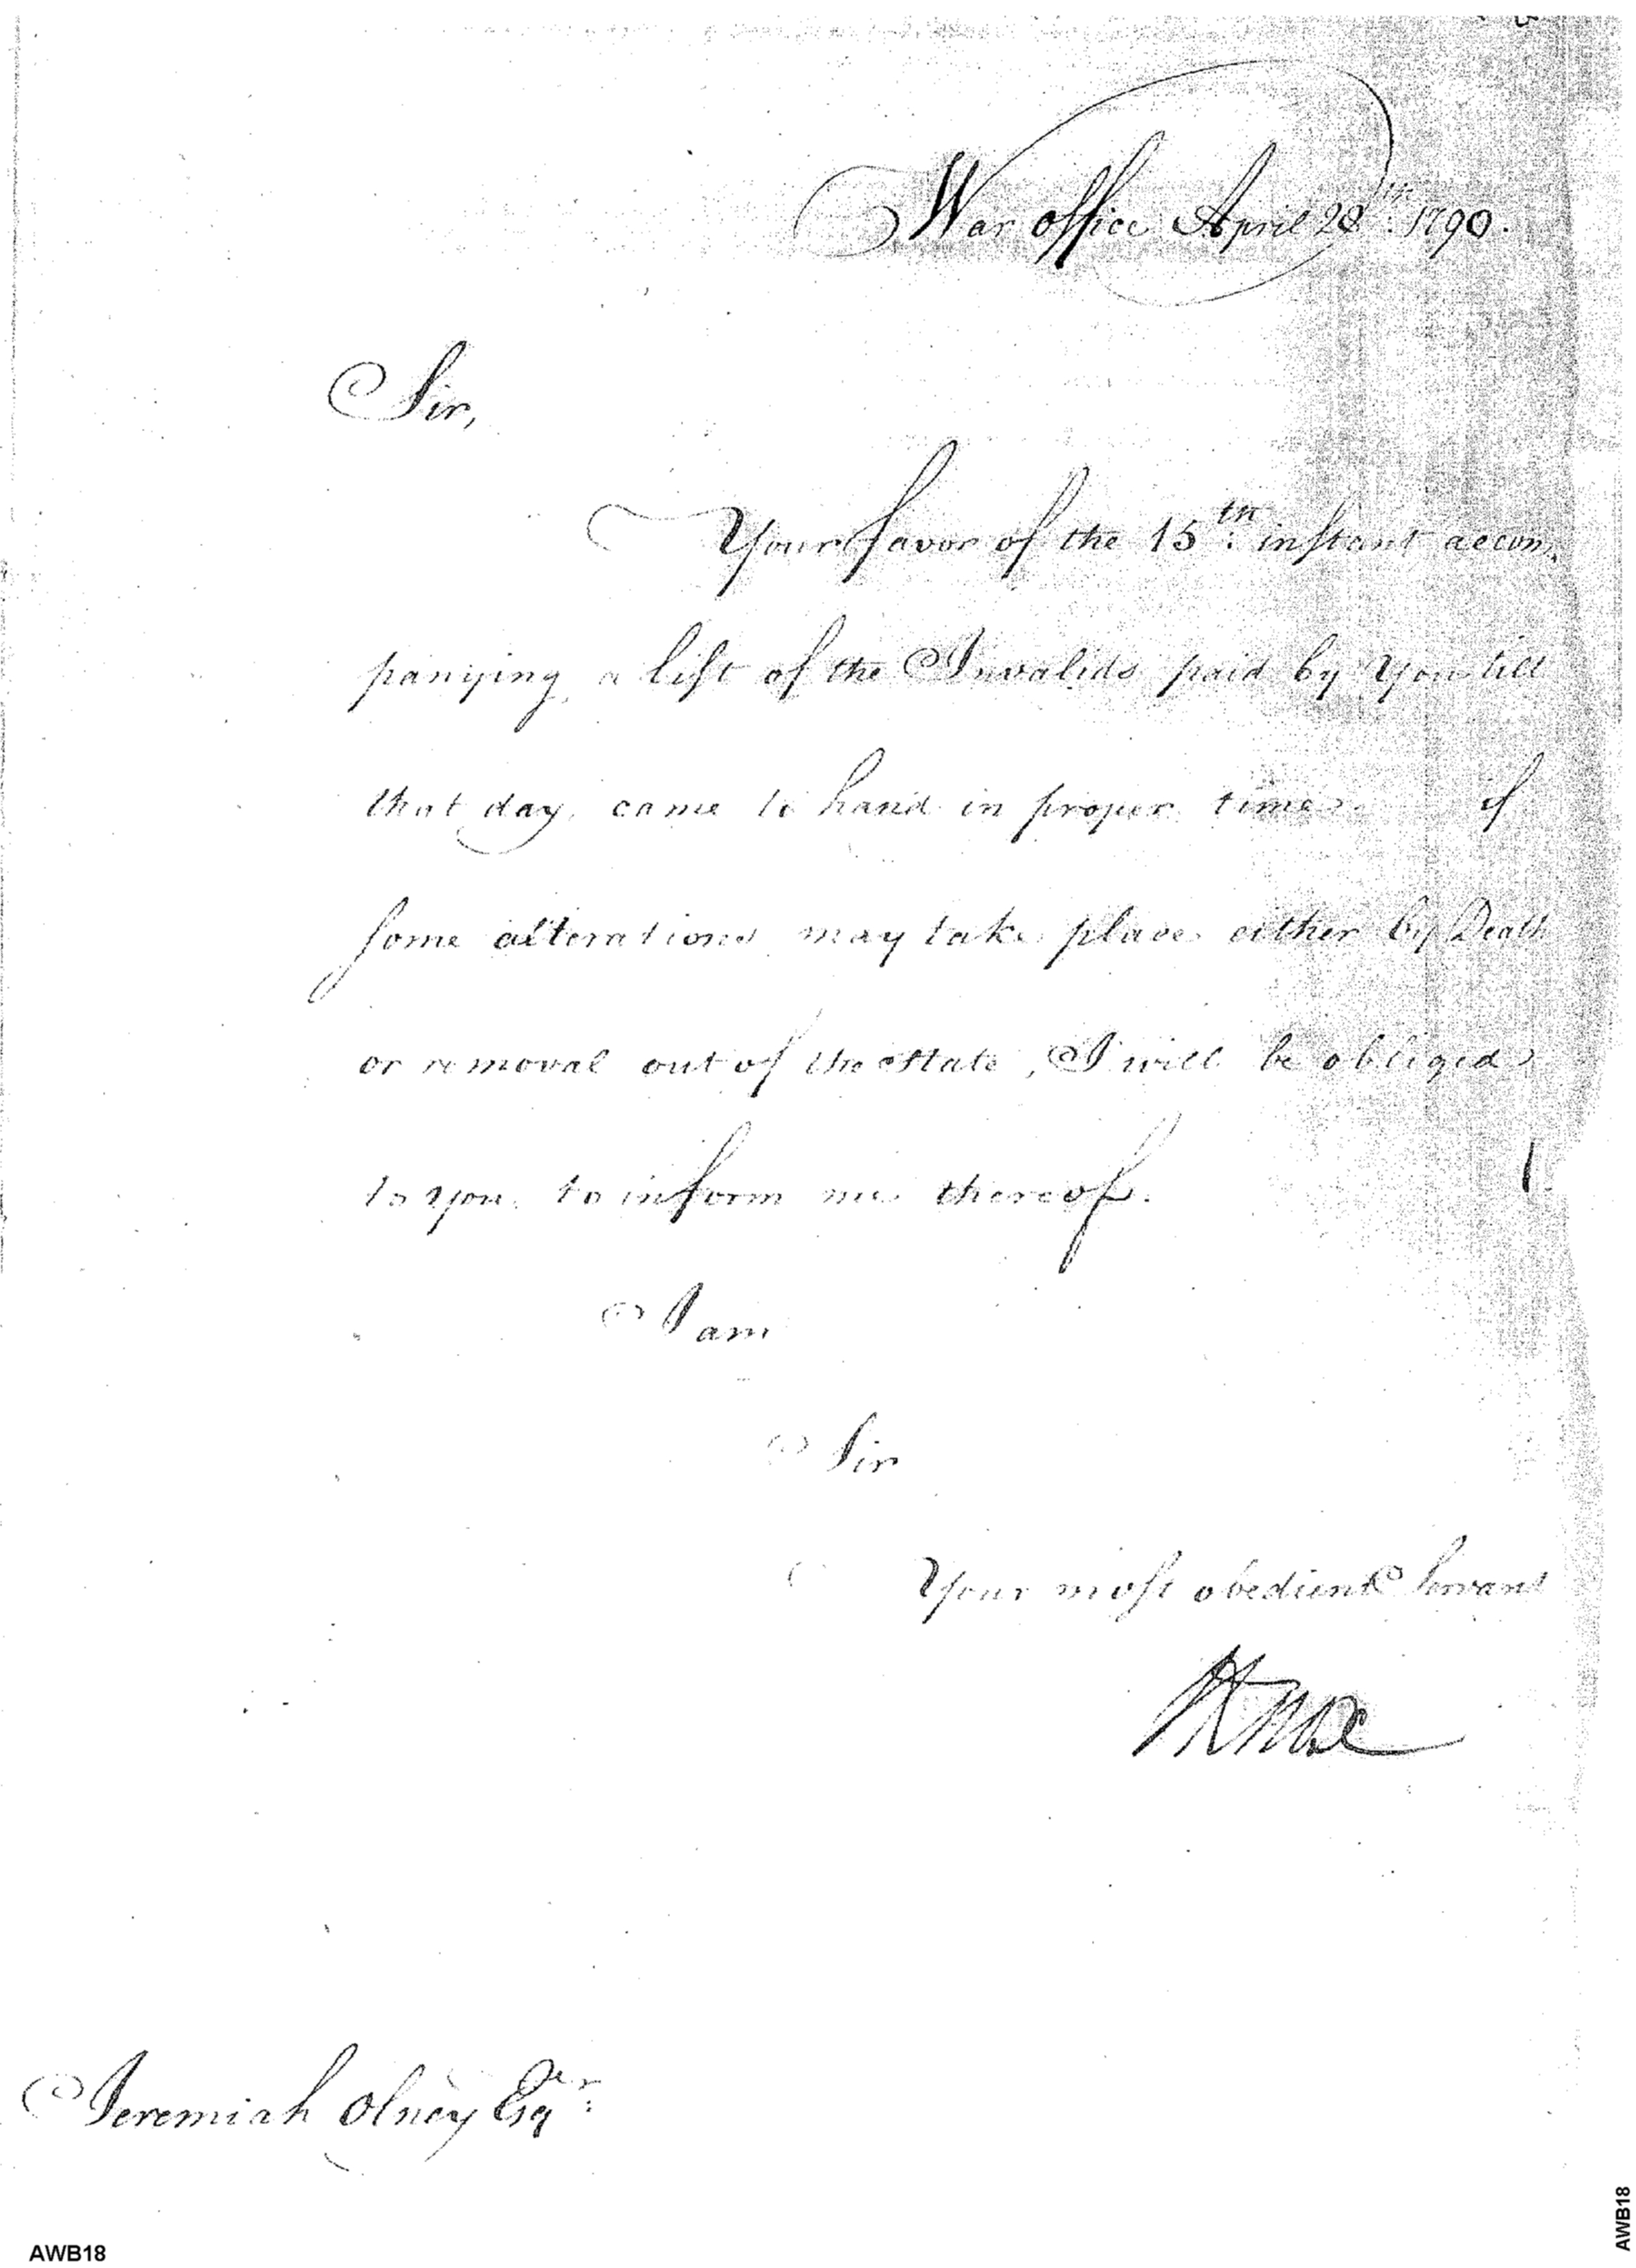 War office April 28th. 1790.
Sir,
Your favor of the 15th. instant accom
panying a list of the Invalids paid by you till
that day, came to hand in proper time. if
some alterations may take place either by Death
or removal out of the State, I will be obliged
to you, to inform me thereof.
I am
Sir
Your most obedient Servant
HKnox
Jeremiah Olney Esqr.
AWB18
AWB18